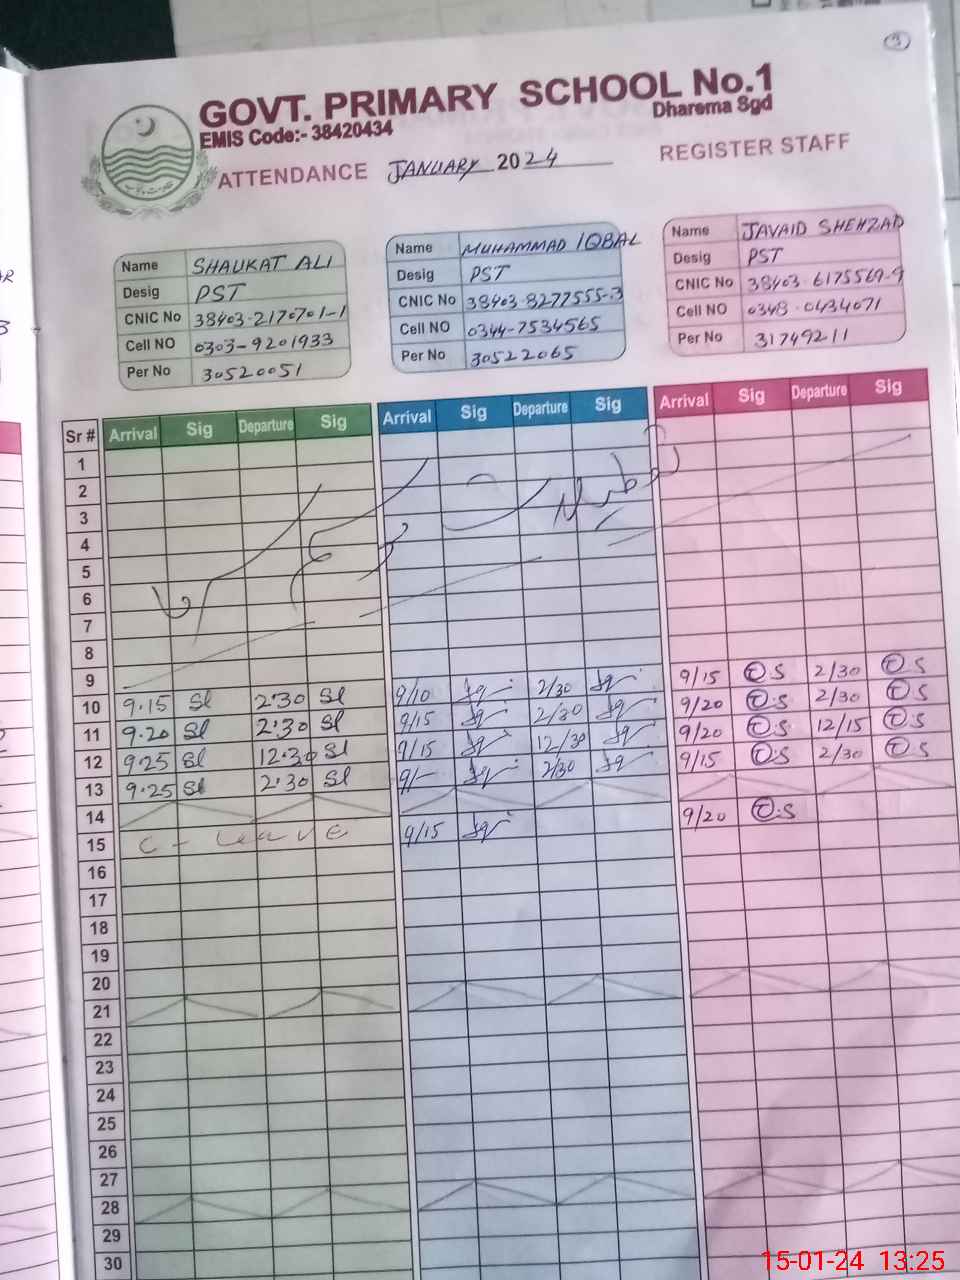 3
GOVT. PRIMARY SCHOOL No.1
EMIS Code:- 38420434 Dharema Sgd
ATTENDANCE JANUARY 2024 REGISTER STAFF
Name SHAUKAT ALI
Desig PST
CNIC No 38403-2170701-1
Cell NO 0303-9201933
Per No 30520051
Name MUHAMMAD IQBAL
Desig PST
CNIC No 38403-8277555-3
Cell NO 0344-7534565
Per No 30522065
Name JAVAID SHEHZAD
Desig PST
CNIC No 38403-6175569-9
Cell NO 0348-0434071
Per No 31749211
Sr # Arrival Sig Departure Sig Arrival Sig Departure Sig Arrival Sig Departure Sig
1
2
3
4
5
6
7
8
9
10 9.15 Sl 2:30 Sl 9/10 2/30 9/15 S 2/30 S
11 9.20 Sl 2:30 Sl 9/15 2/30 9/20 S 2/30 S
12 9.25 Sl 12.30 Sl 9/15 12/30 9/20 S 12/15 S
13 9.25 Sl 2.30 Sl 9/- 2/30 9/15 S 2/30 S
14
15 C - Leave 9/15 9/20 S
16
17
18
19
20
21
22
23
24
25
26
27
28
29
30
15-01-24 13:25